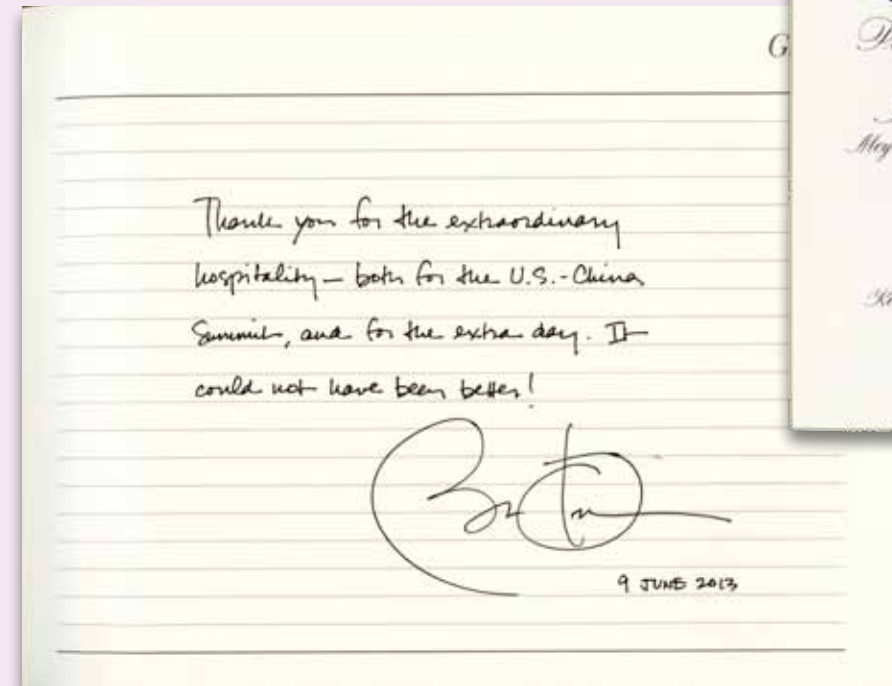 G
Thank you for the extraordinary
hospitality – both for the U.S.-China
Summit, and for the extra day. It
could not have been better!
9 JUNE 2013